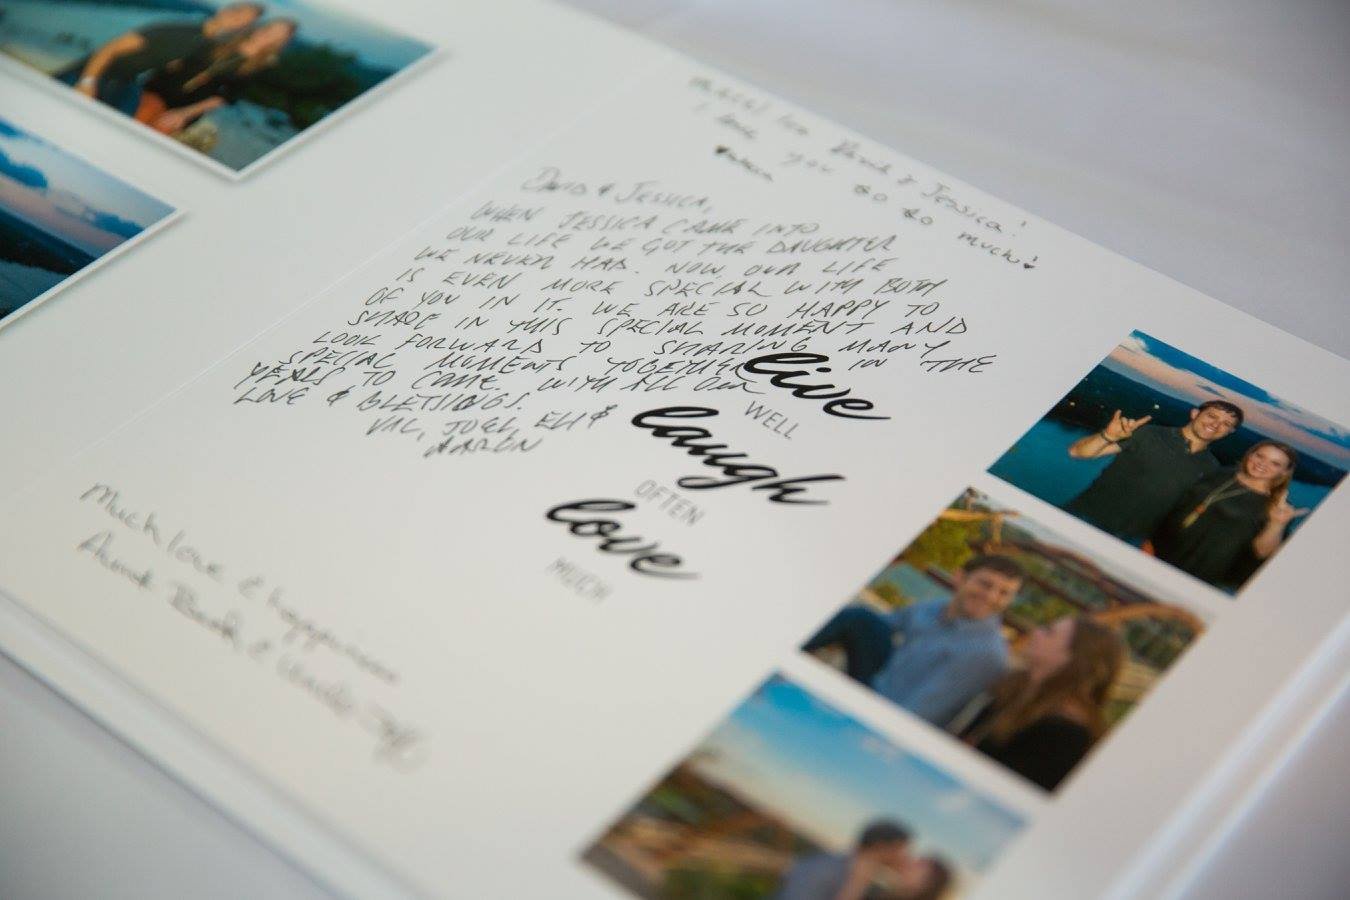 David & Jessica!
I love you so so much!
DAVID & JESSICA,
WHEN JESSICA CAME INTO
OUR LIFE WE GOT THE DAUGHTER
WE NEVER HAD. NOW, OUR LIFE
IS EVEN MORE SPECIAL WITH BOTH
OF YOU IN IT. WE ARE SO HAPPY TO
SHARE IN THIS SPECIAL MOMENT AND
LOOK FORWARD TO SHARING MANY
SPECIAL MOMENTS TOGETHER IN THE
YEARS TO COME. WITH ALL OUR
LOVE & BLESSINGS.
VAL, JOEL, ELI &
AARON
live
WELL
laugh
OFTEN
love
MUCH
Much love & happiness
Aunt Barb & Uncle